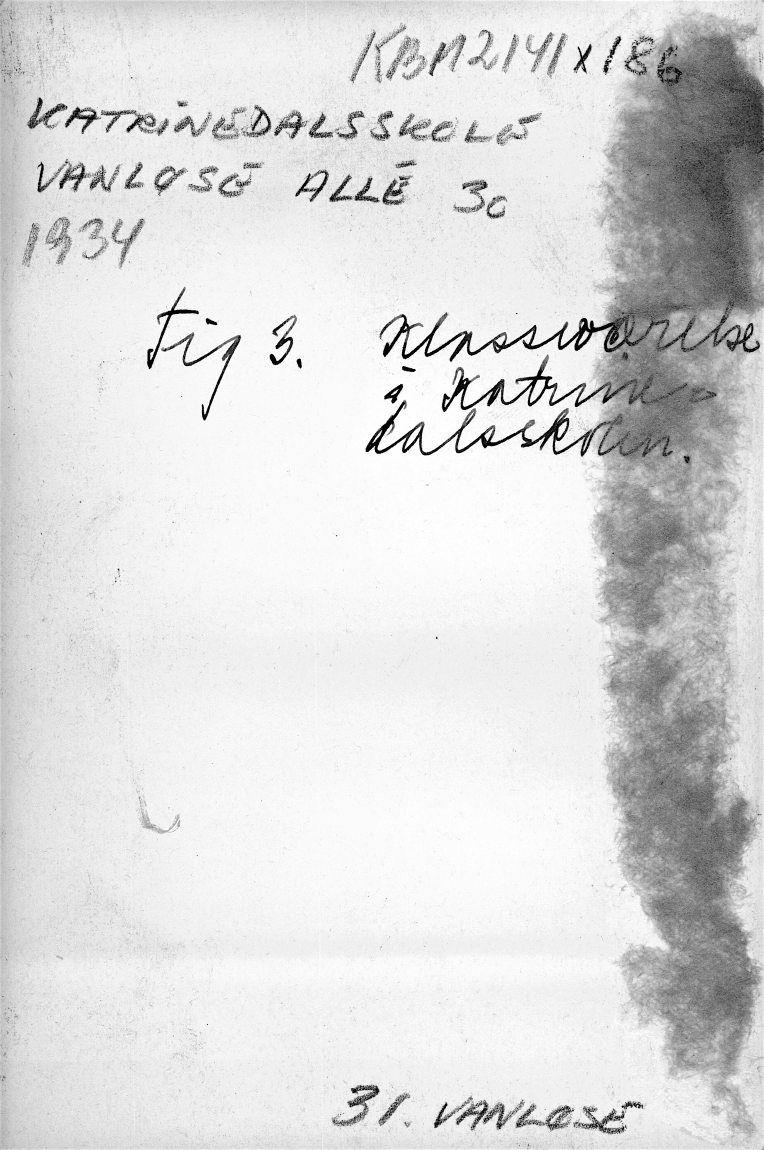 KBM2141x186
KATRINEDALSSKOLE
VANLØSE ALLÉ 30
1934
Fig 3. Klasseværelse
i Katrine-
dalsskolen.
31. VANLØSE